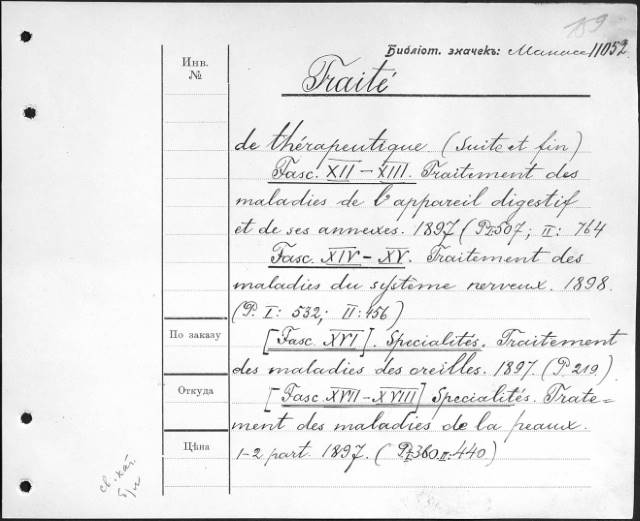 159
Библіот. значекъ: Манассе 11052
Инв.
№
Traité
de thérapeutique (suite et fin)
Fasc. XII – XIII. Traitement des
maladies de l'appareil digestif
et de ses annexes. 1897 (P. I: 507; II: 764
Fasc. XIV – XV. Traitement des
maladies du système nerveux. 1898.
(P. I: 532; II: 456)
По заказу
[Fasc. XVI]. Specialités. Traitement
des maladies des oreilles. 1897. (P. 219).
Откуда
[Fasc. XVII – XVIII] Specialités. Traite=
ment des maladies de la peaux.
Цѣна
1-2 part. 1897. (P. I: 360, II: 440)
св. кат.